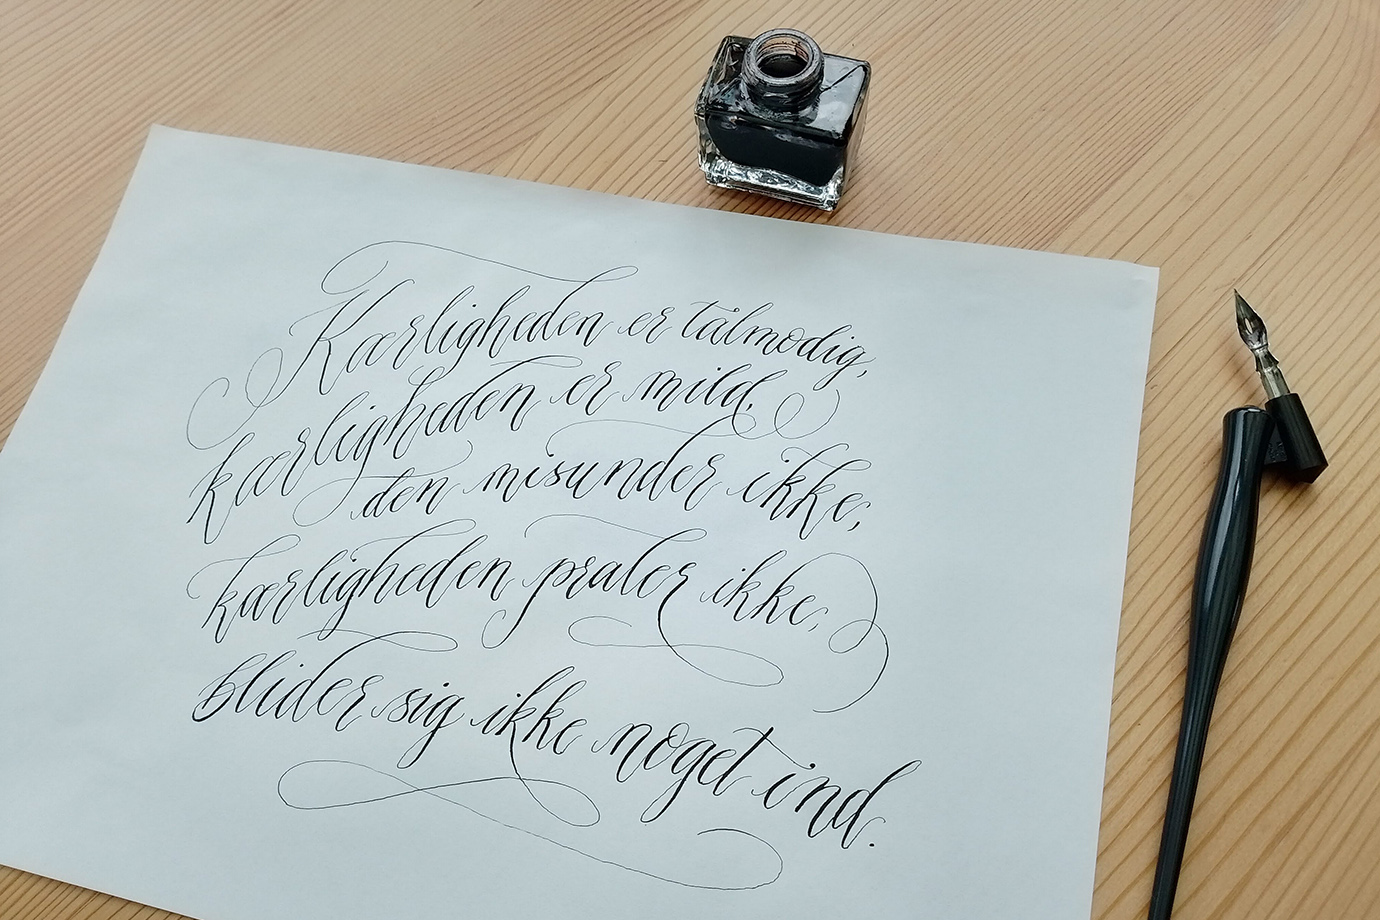 Kærligheden er tålmodig,
kærligheden er mild.
den misunder ikke,
kærligheden praler ikke,
blider sig ikke noget ind.